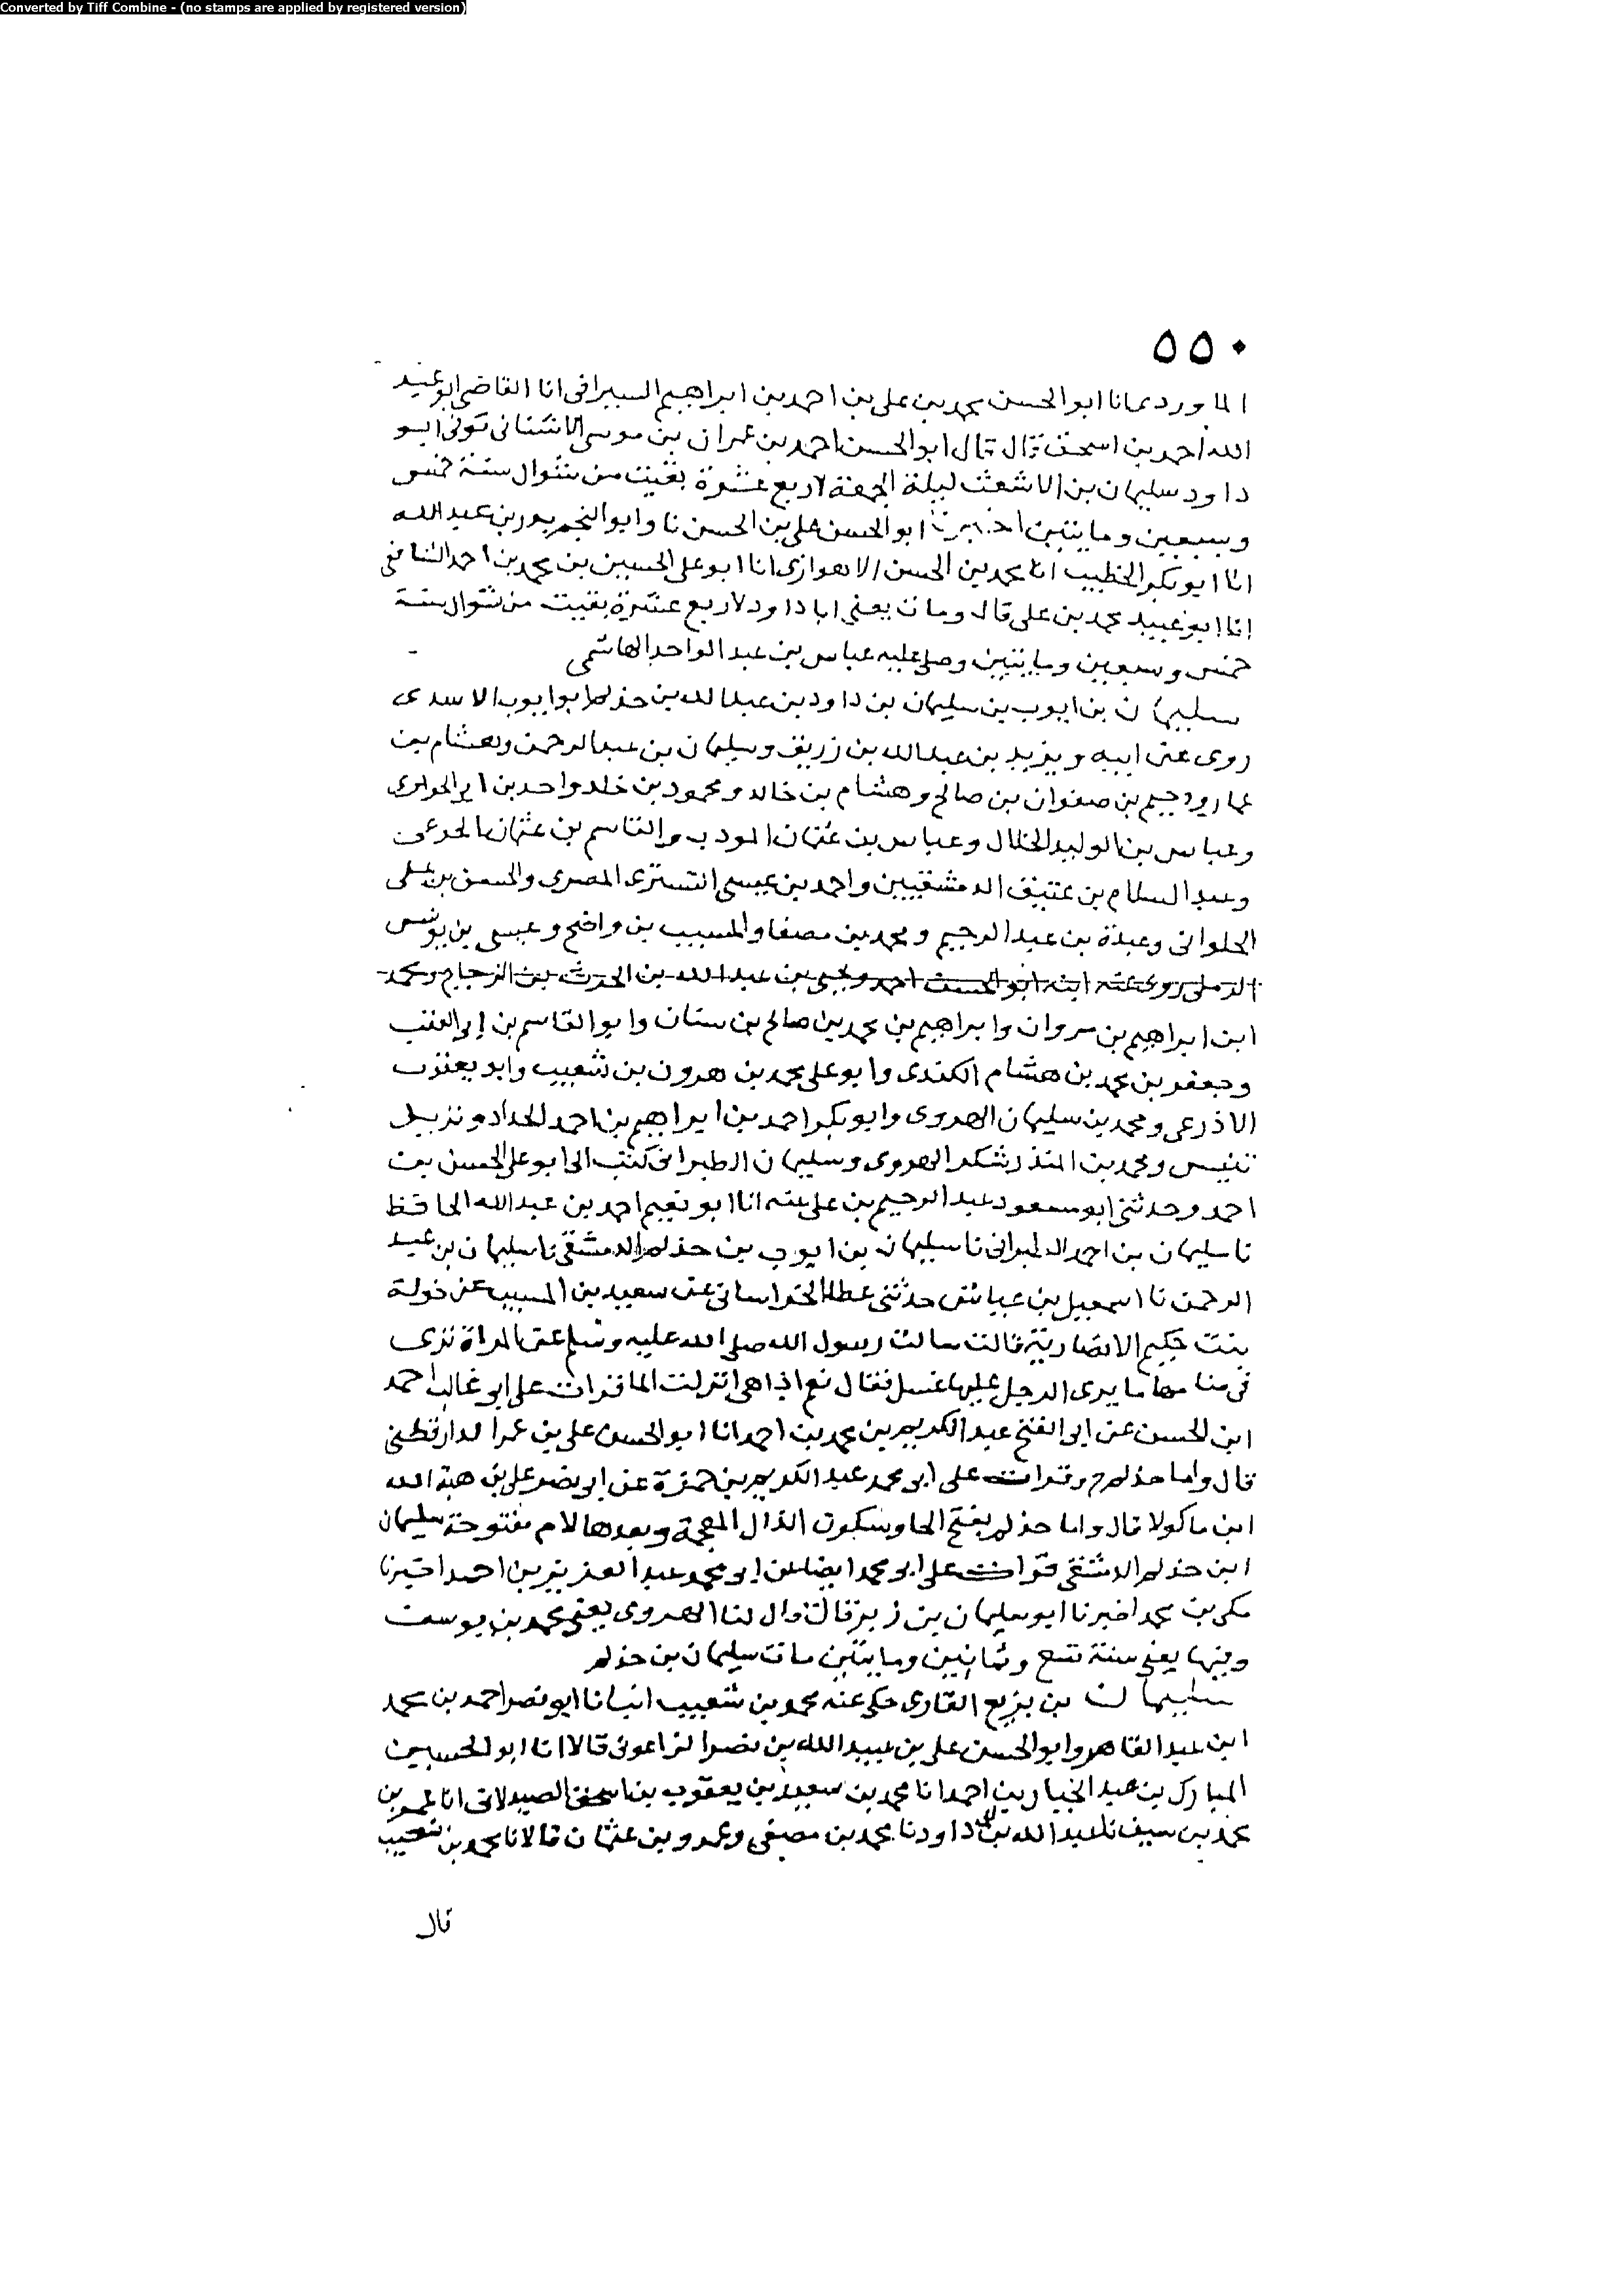 Converted by Tiff Combine - (no stamps are applied by registered version)
٥٥٠
الماوردي انا ابو الحسن محمد بن علي بن احمد بن ابراهيم السيرافي انا القاضي ابو عبد
الله احمد بن اسحق قال قال ابو الحسن احمد بن عمران بن موسى الاشناني توفي ابو
داود سليمان بن الاشعث ليلة الجمعة لاربع عشرة بقيت من شوال سنة خمس
وسبعين ومايتين اخبرنا ابو الحسن علي بن الحسن نا وابو النجم بدر بن عبد الله
انا ابو بكر الخطيب انا محمد بن الحسن الاهوازي انا ابو علي الحسين بن محمد بن احمد الشافعي
انا ابو عبيد محمد بن علي قال ومات يعني ابا داود لاربع عشرة بقيت من شوال سنة
خمس وسبعين ومايتين وصلى عليه عباس بن عبد الواحد الهاشمي
سليمان بن ايوب بن سليمان بن داود بن عبد الله بن حذلم ابو ايوب الاسدي
روى عن ابيه ويزيد بن عبد الله بن زريق وسليمان بن عبد الرحمن وهشام بن
عمار ودحيم بن صفوان بن صالح وهشام بن خالد ومحمود بن خلد واحمد بن ابي الحواري
وعباس بن الوليد الخلال وعباس بن عثمان المودب والقاسم بن عثمان الجوعي
وعبد السلام بن عتيق الدمشقيين واحمد بن عيسى التستري المصري والحسن بن علي
الحلواني وعبدة بن عبد الرحيم ومحمد بن مصفا والمسيب بن واضح وعيسى بن يونس
الرملي روى عنه ابنه ابو الحسن احمد ويحيى بن عبد الله بن الحرث بن الزجاج ومحمد
ابن ابراهيم بن مروان وابراهيم بن محمد بن صالح بن سنان وابو القاسم بن ابي العقب
وجعفر بن محمد بن هشام الكندي وابو علي محمد بن هرون بن شعيب وابو يعقوب
الاذرعي ومحمد بن سليمان الهروي وابو بكر احمد بن ابراهيم بن احمد الحداد ونزيل
تنيس ومحمد بن المنذر شكر الهروي وسليمان الطبراني كتب الي ابو علي الحسن بن
احمد وحدثني ابو مسعود عبد الرحيم بن علي عنه انا ابو نعيم احمد بن عبد الله الحافظ
نا سليمان بن احمد الطبراني نا سليمان بن ايوب بن حذلم الدمشقي نا سليمان بن عبد
الرحمن نا اسمعيل بن عياش حدثني عطا الخراساني عن سعيد بن المسيب عن خولة
بنت حكيم الانصارية قالت سالت رسول الله صلى الله عليه وسلم عن المراة ترى
في منامها ما يرى الرجل عليها غسل فقال نعم اذا هي انزلت الما قرات على ابو غالب احمد
ابن الحسن عن ابي الفتح عبد الكريم بن محمد بن احمد انا ابو الحسن علي بن عمر الدارقطني
قال واما حذلم وقرات على ابو محمد عبد الكريم بن حمزة عن ابي نصر علي بن هبة الله
ابن ماكولا قال واما حذلم بفتح الحا وسكون الذال المعجمة وبعدها لام مفتوحة سليمان
ابن حذلم الدمشقي قرات على ابو محمد ايضا عن ابو محمد عبد العزيز بن احمد اخبرنا
مكي بن محمد اخبرنا ابو سليمان بن زبر قال قال لنا الهروي يعني محمد بن يوسف
وفيها يعني سنة تسع وثمانين ومايتين مات سليمان بن حذلم
سليمان بن بزيع القاري حكى عنه محمد بن شعيب انبانا ابو نصر احمد بن محمد
ابن عبد القاهر وابو الحسن علي بن عبيد الله بن نصر الزاغوني قالا انا ابو الحسين
المبارك بن عبد الجبار بن احمد انا محمد بن سعيد بن يعقوب بن اسحق الصيدلاني انا عمر بن
محمد بن سيف نا عبد الله بن داود نا محمد بن مصفى وعمرو بن عثمان قالا نا محمد بن شعيب
قال